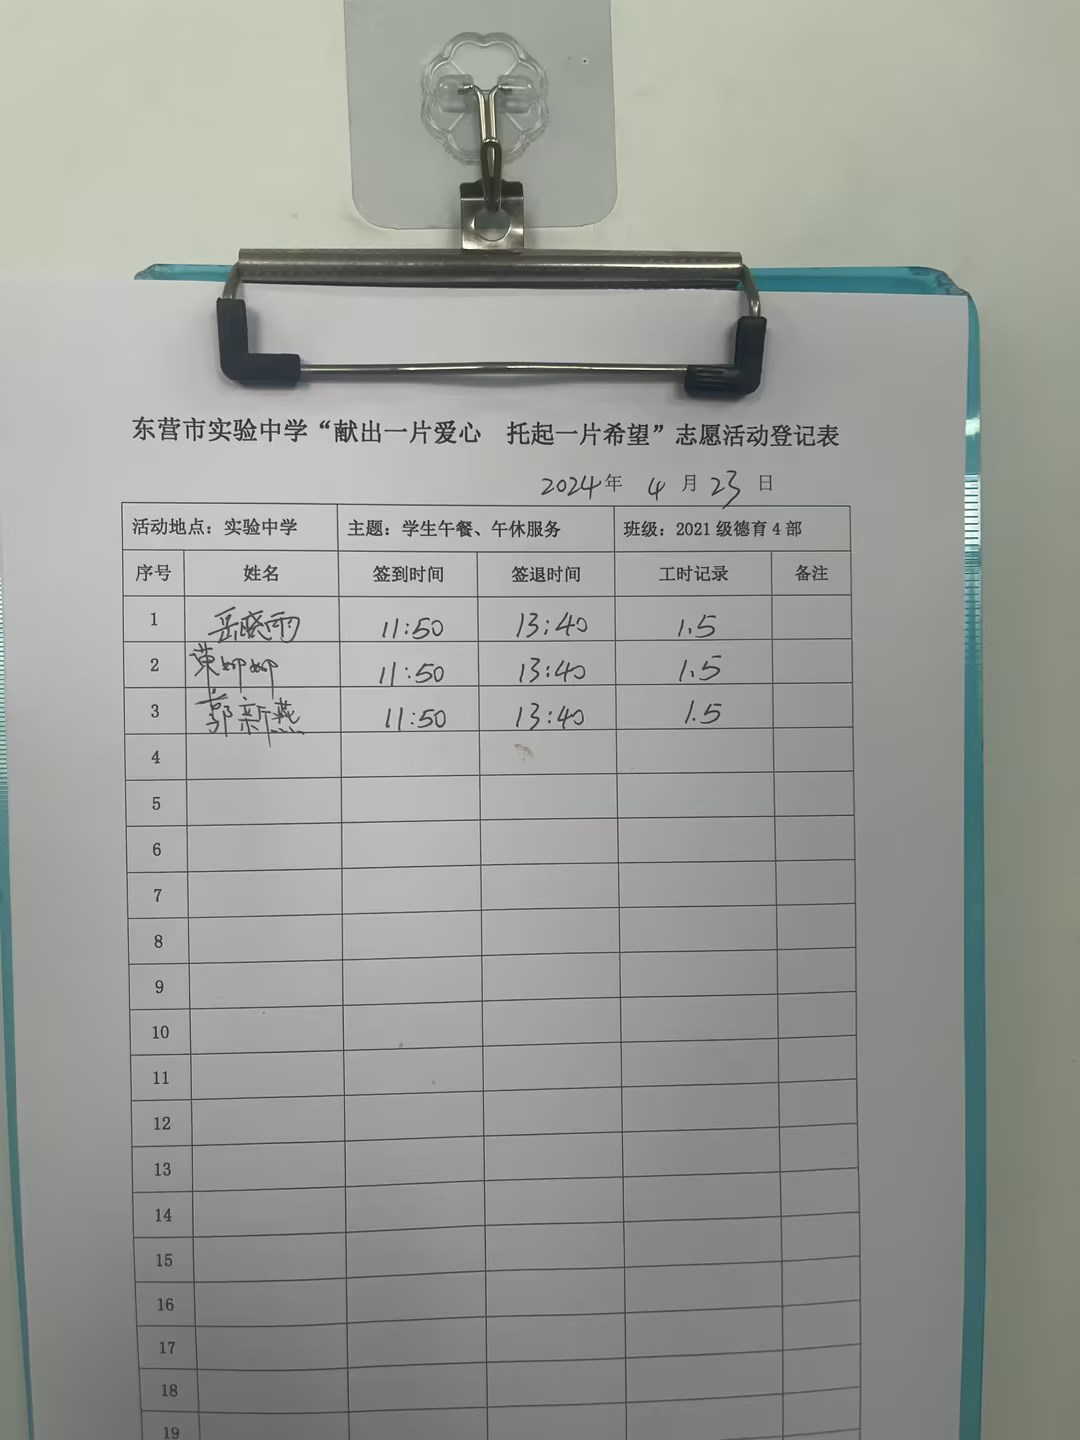 东营市实验中学“献出一片爱心 托起一片希望”志愿活动登记表
2024年 4 月 23 日
活动地点：实验中学 主题：学生午餐、午休服务 班级：2021 级德育 4 部
序号 姓名 签到时间 签退时间 工时记录 备注
1 岳晓雨 11:50 13:40 1.5
2 11:50 13:40 1.5
3 郭新燕 11:50 13:40 1.5
4
5
6
7
8
9
10
11
12
13
14
15
16
17
18
19